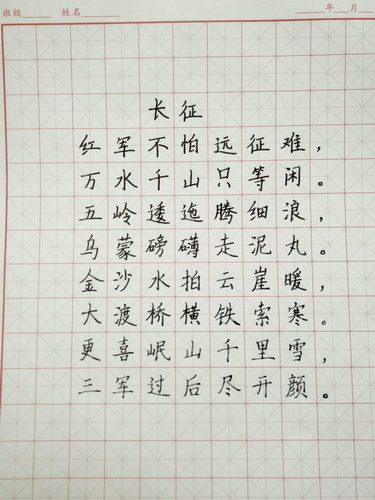 班级 姓名 年 月
长征
红军不怕远征难，
万水千山只等闲。
五岭逶迤腾细浪，
乌蒙磅礴走泥丸。
金沙水拍云崖暖，
大渡桥横铁索寒。
更喜岷山千里雪，
三军过后尽开颜。